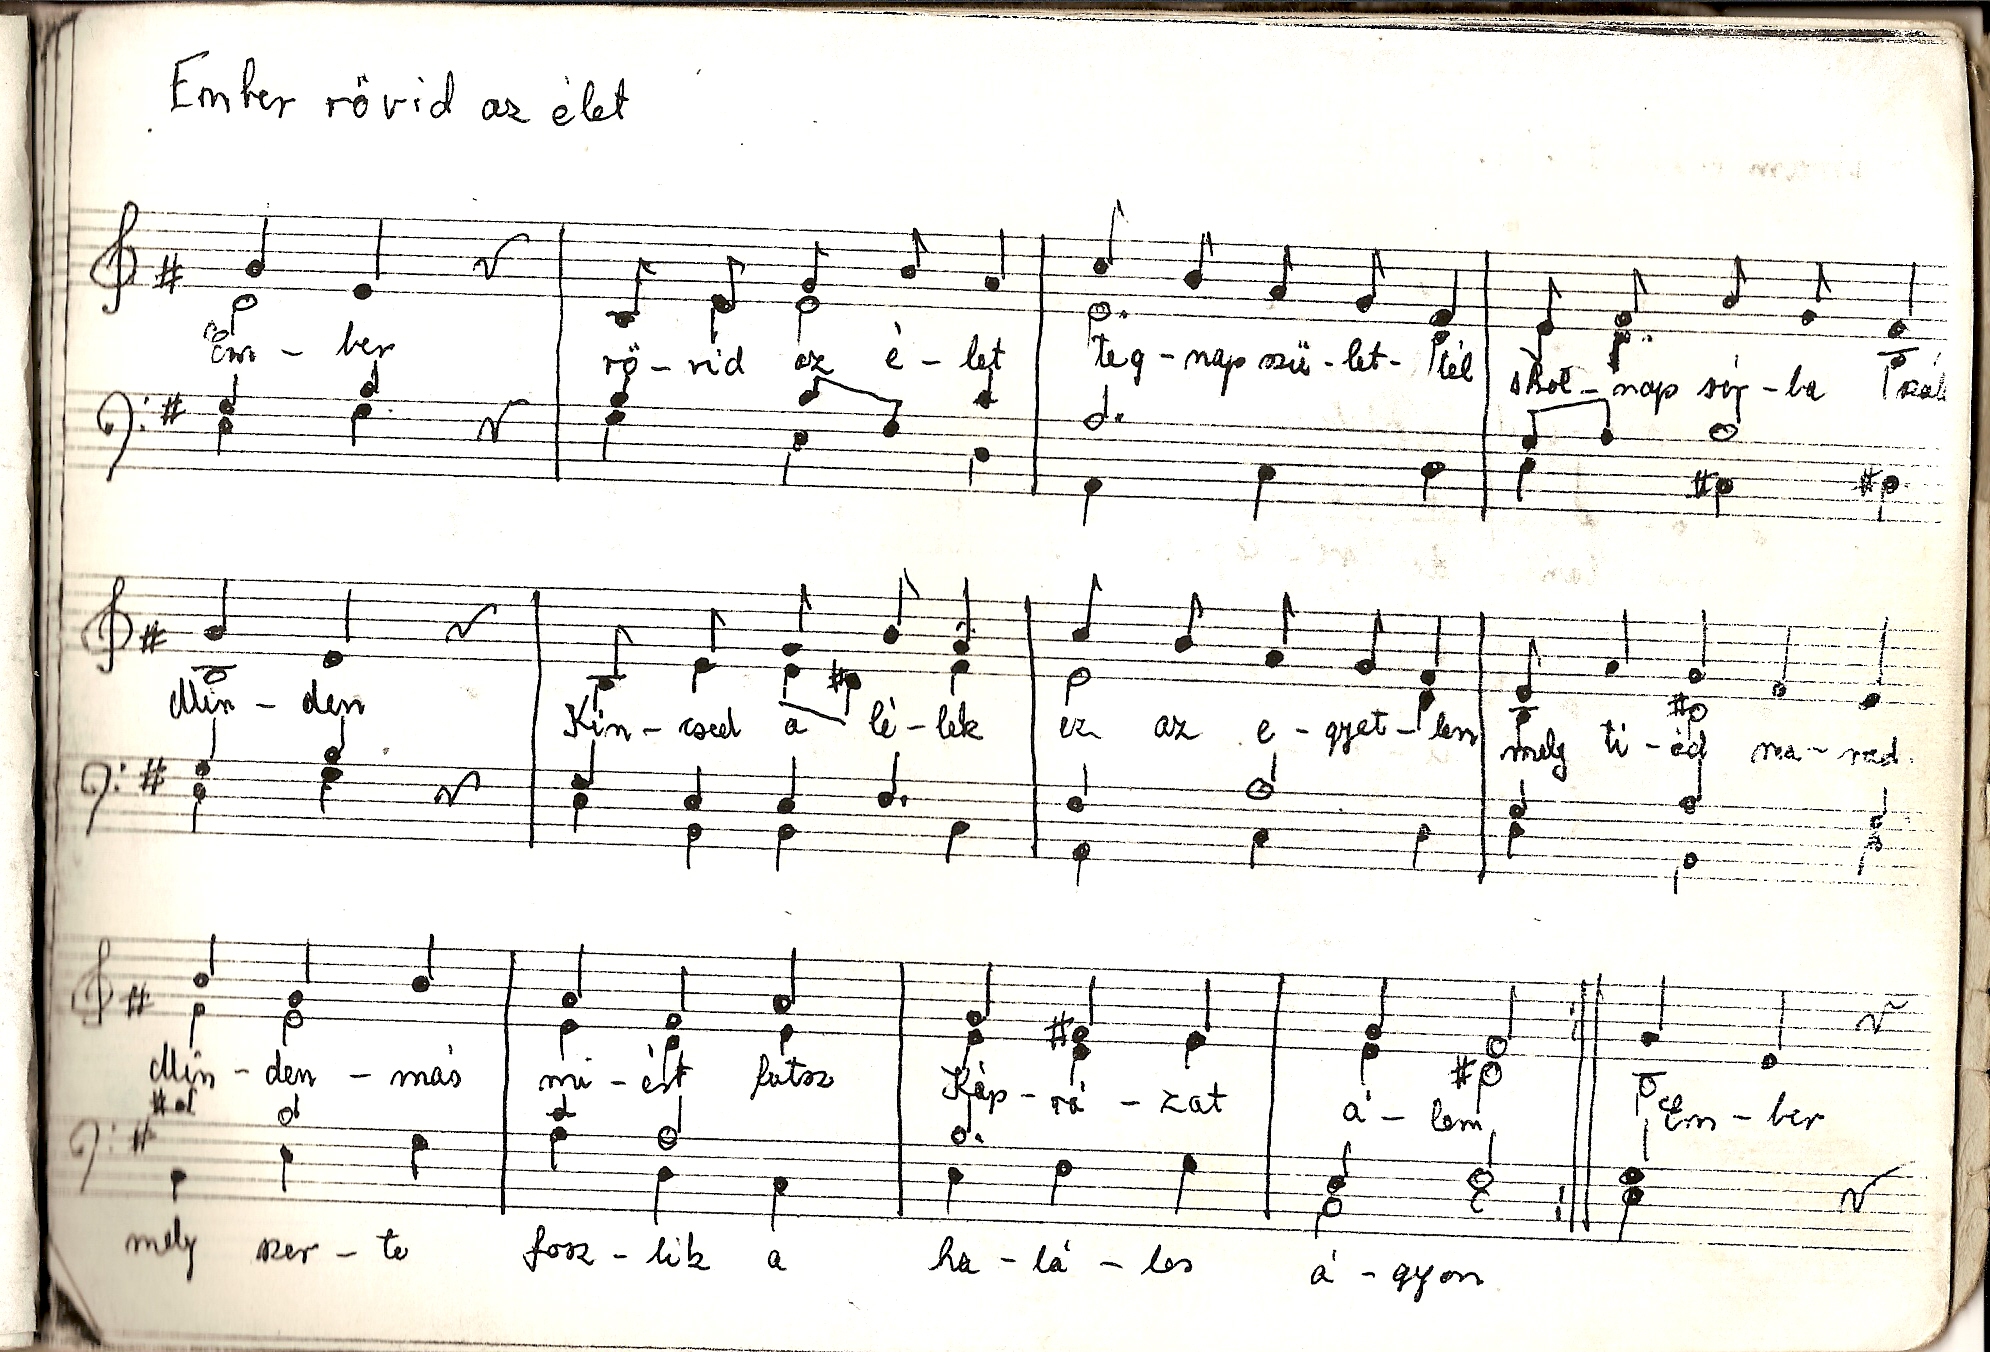 Ember rövid az élet
Em - ber rö - vid az é - let teg - nap szü - let - tél s hol - nap sír - ba szál
Min - den Kin - csed a lé - lek ez az e - gyet - len mely ti - éd ma - rad.
Min - den - más mi - ért futsz Káp - rá - zat á - lom Em - ber
mely szer - te fosz - lik a ha - lá - los á - gyon